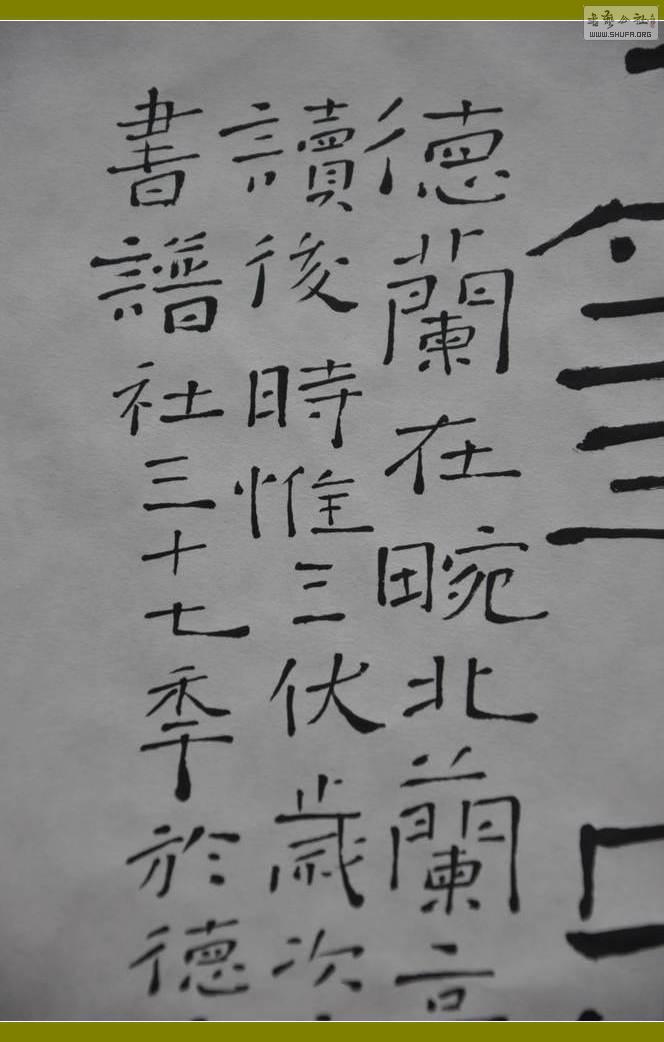 德蘭在畹北蘭言
讀後時惟三伏歲次
書譜社三十七季於德
WWW.SHUFA.ORG